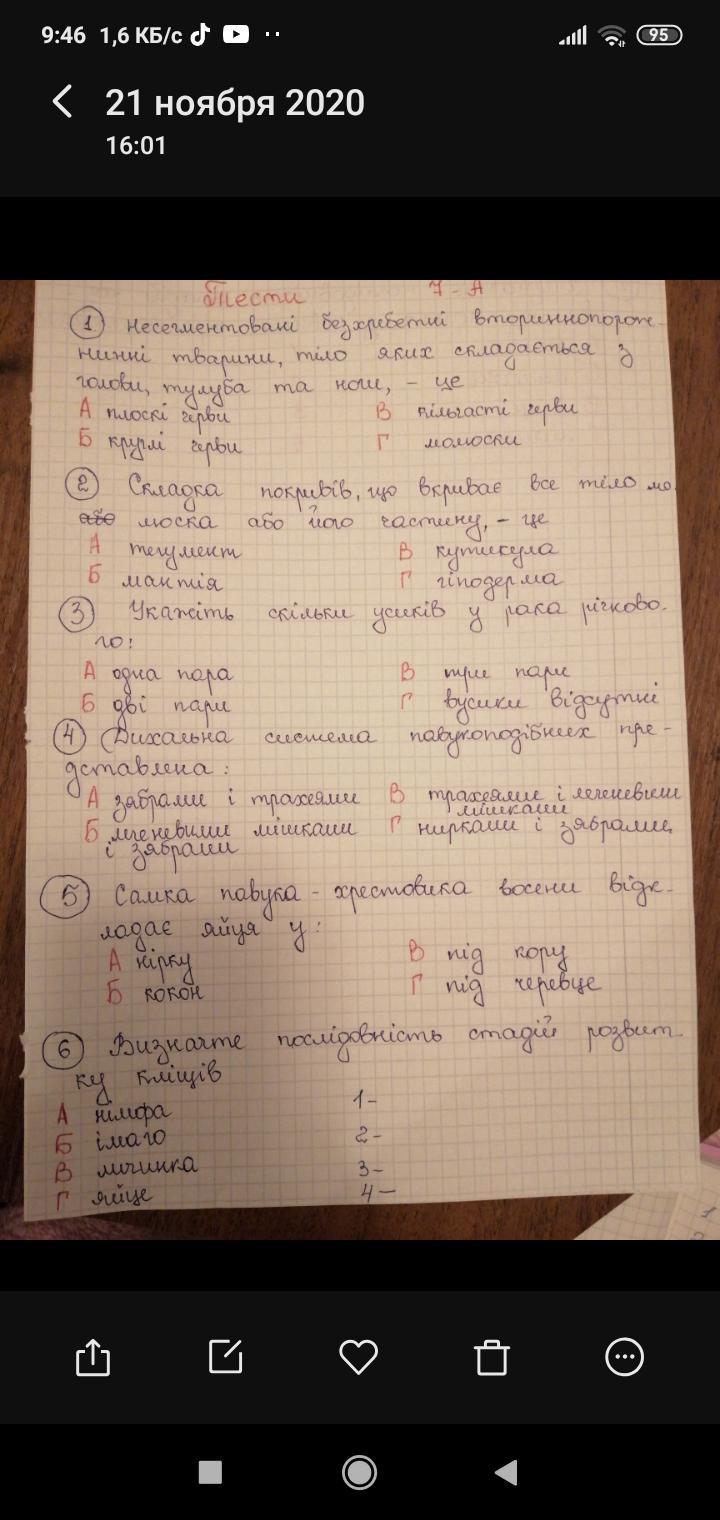 9:46 1,6 КБ/с
95
21 ноября 2020
16:01
Тести 7-А
1 Несегментовані безхребетні вториннопорож-
нинні тварини, тіло яких складається з
голови, тулуба та ноги, - це
А плоскі черви В кільчасті черви
Б круглі черви Г молюски
2 Складка покривів, що вкриває все тіло мо
або люска або його частину, - це
А тегумент В кутикула
Б мантія Г гіподерма
3 Укажіть скільки усиків у рака річково-
го:
А одна пара В три пари
Б дві пари Г вусики відсутні
4 Дихальна система павукоподібних пре-
дставлена:
А зябрами і трахеями В трахеями і легеневими
мішками
Б легеневими мішками Г нирками і зябрами
і зябрами
5 Самка павука-хрестовика восени відк-
ладає яйця у:
А нірку В під кору
Б кокон Г під черевце
6 Визначте послідовність стадій розвит-
ку кліщів
А німфа 1-
Б імаго 2-
В личинка 3-
Г яйце 4-